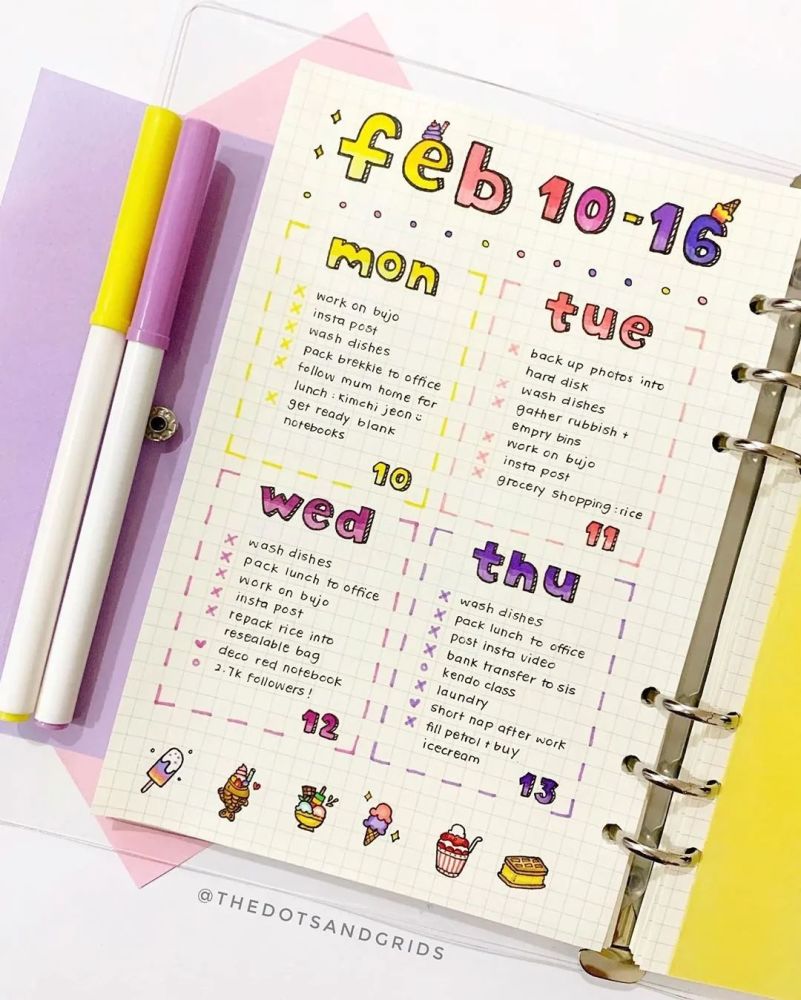 feb 10-16
mon
work on bujo
insta post
wash dishes
pack brekkie to office
follow mum home for
lunch : kimchi jeon :
get ready blank
notebooks
10
tue
back up photos into
hard disk
wash dishes
gather rubbish +
empty bins
work on bujo
insta post
grocery shopping : rice
11
wed
wash dishes
pack lunch to office
work on bujo
insta post
repack rice into
resealable bag
deco red notebook
2.7k followers!
12
thu
wash dishes
pack lunch to office
post insta video
bank transfer to sis
kendo class
laundry
short nap after work
fill petrol + buy
icecream
13
@THEDOTSANDGRIDS